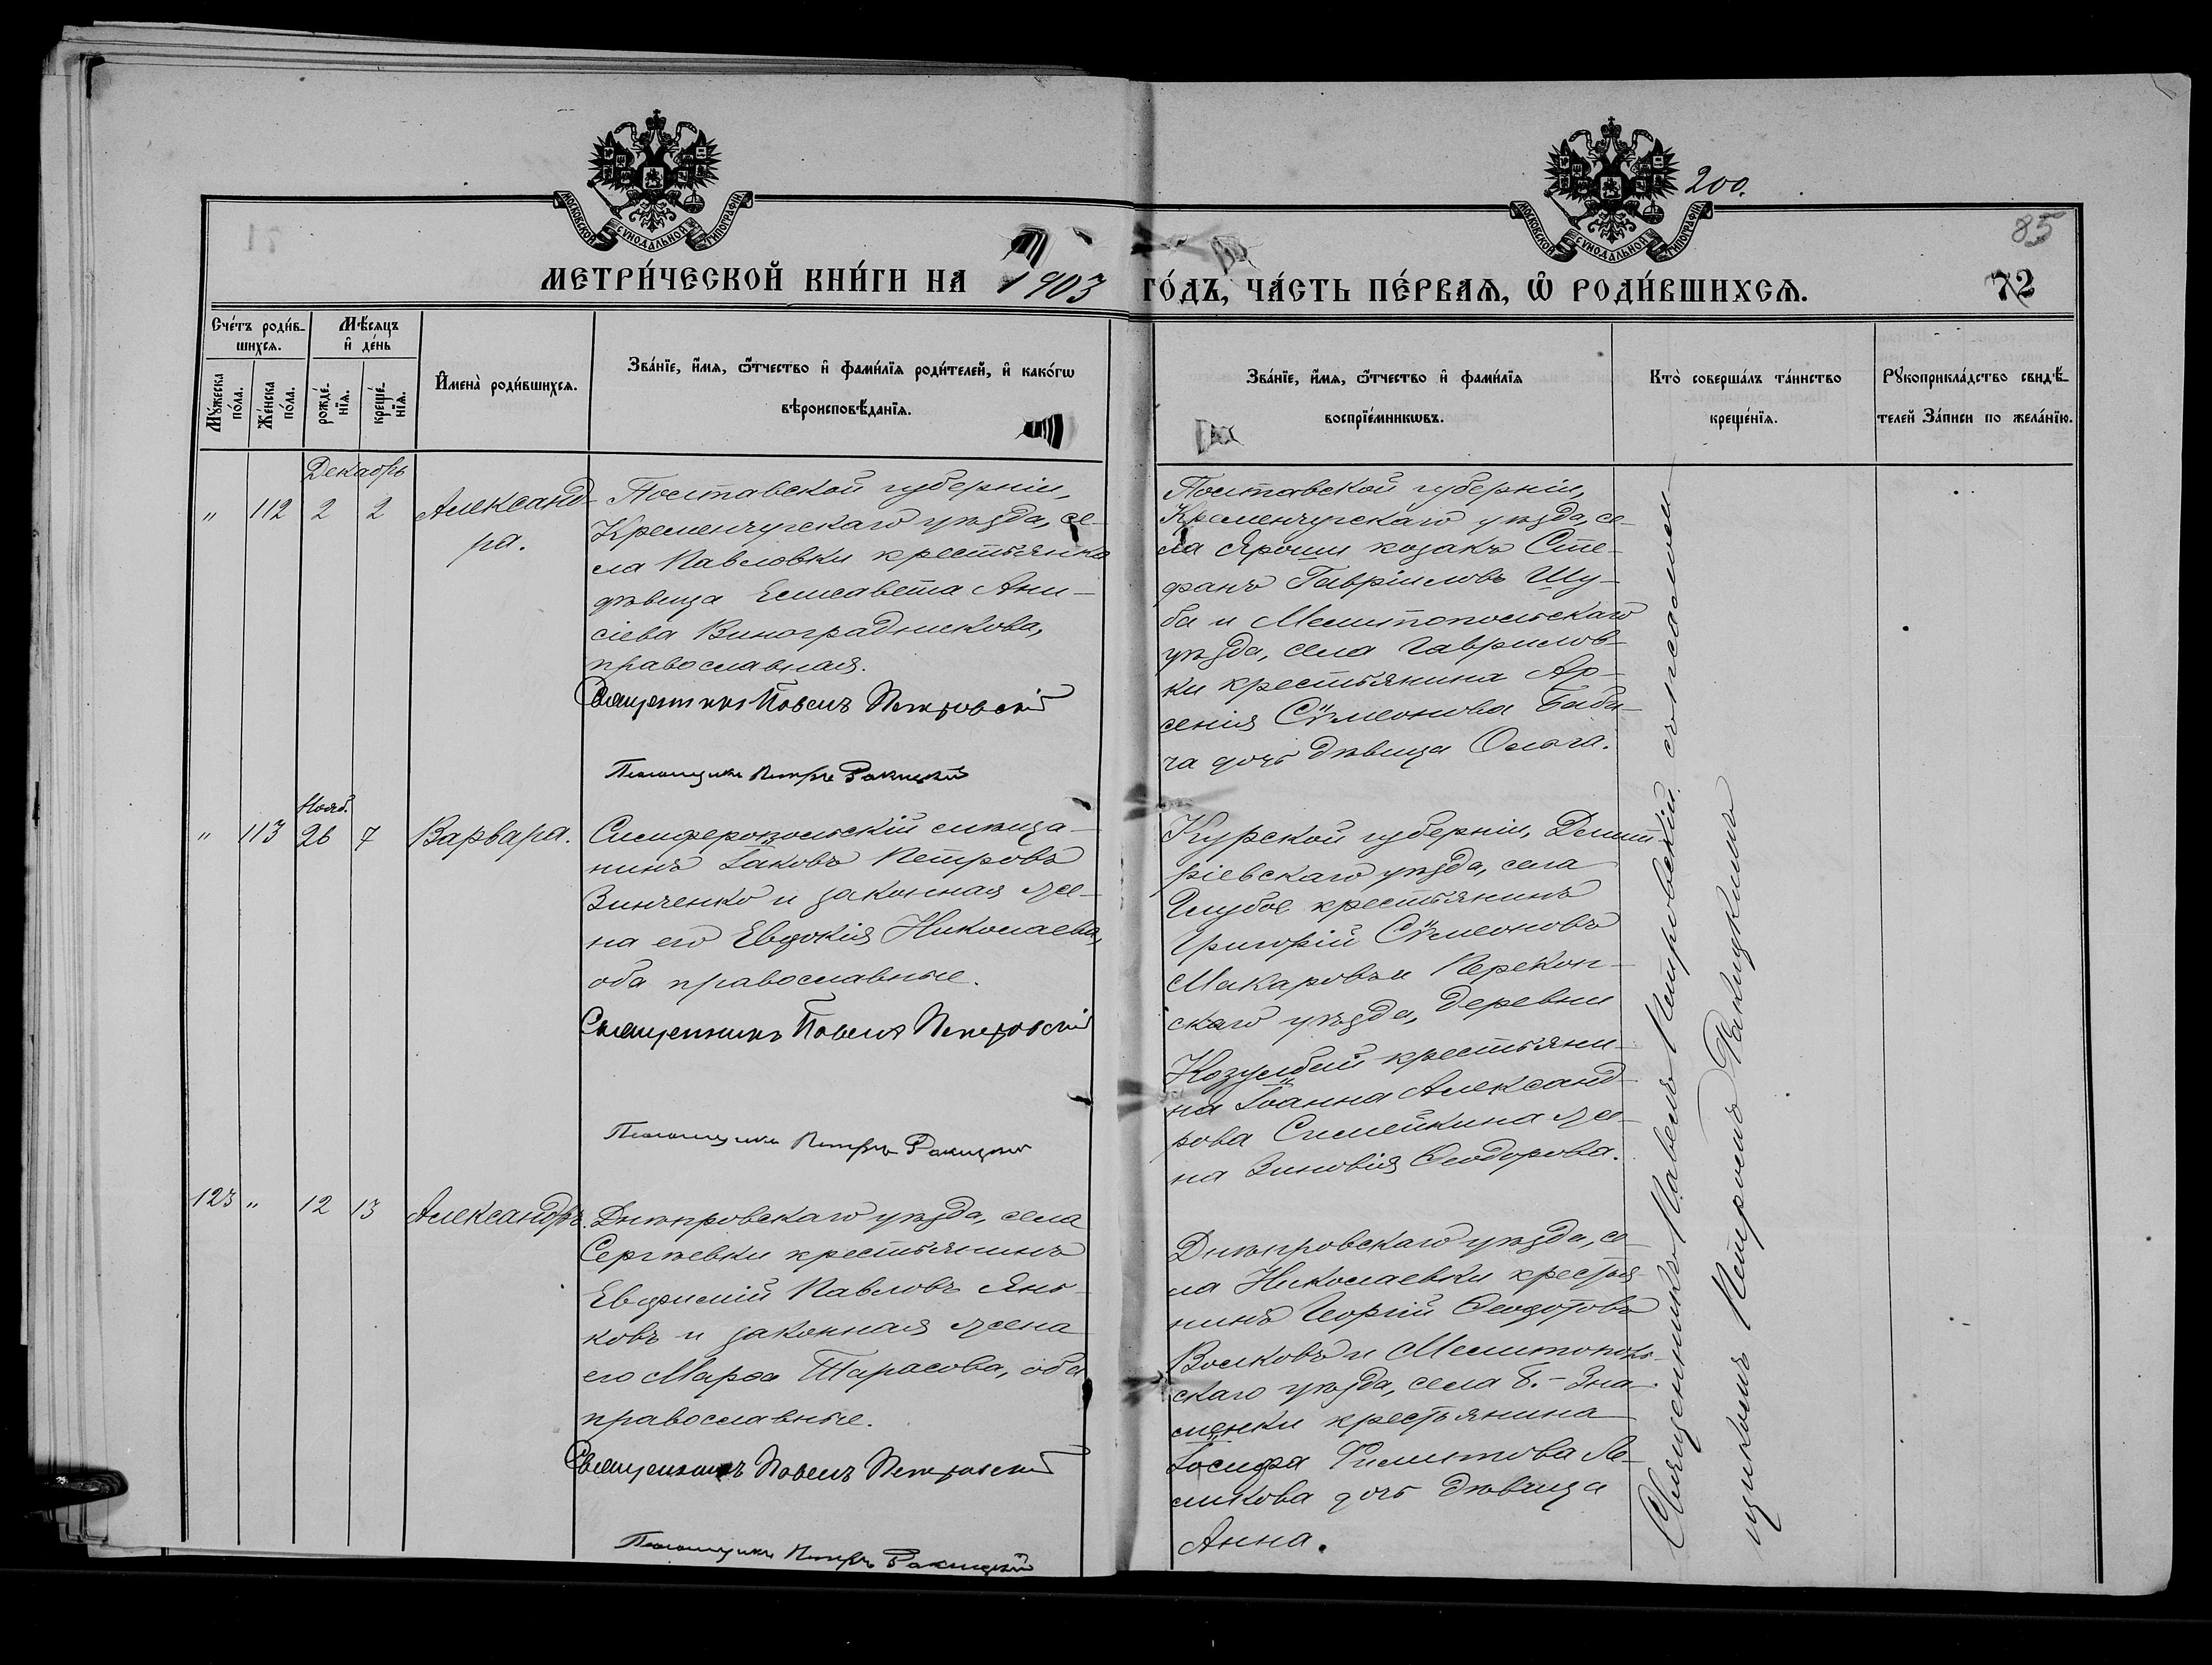 МОСКОВСКОЙ СѴНОДАЛЬНОЙ ТИПОГРАФІИ
МОСКОВСКОЙ СѴНОДАЛЬНОЙ ТИПОГРАФІИ
200.
85
МЕТРИ́ЧЕСКОЙ КНИ́ГИ НА 1903 ГО́ДЪ, ЧА́СТЬ ПЕ́РВАѦ, Ѡ҆ РОДИ́ВШИХСѦ.
72
Сче́тъ роди́в-
шихсѧ.
Мѣ́сѧцъ
и҆ де́нь
Мꙋ́жеска
по́ла.
Же́нска
по́ла.
рожде́-
нїѧ.
креще́-
нїѧ.
И҆мена̀ роди́вшихсѧ.
Зва́нїе, и҆́мѧ, ѻ҆́тчество и҆ фами́лїѧ роди́телей, и҆ како́гѡ
вѣроисповѣ́данїѧ.
Зва́нїе, и҆́мѧ, ѻ҆́тчество и҆ фами́лїѧ
воспрїе́мникѡвъ.
Кто̀ соверша́лъ та́инство
креще́нїѧ.
Рꙋкоприкла́дство свидѣ́-
телей За́писи по жела́нїю.
Декабрь
" 112 2 2 Александ-
ра.
Полтавской губерніи,
Кременчугскаго уѣзда, се-
ла Павловки крестьянка
дѣвица Елисавета Ани-
сіева Виноградникова,
православная.
Священникъ Павелъ Петровскій
Псаломщикъ Петръ Ракицкій
Полтавской губерніи,
Кременчугскаго уѣзда, се-
ла Яроши козакъ Сте-
фанъ Гавріиловъ Шу-
ба и Мелитопольскаго
уѣзда, села Гаврилов-
ки крестьянина Ар-
сенія Сѵмеонова Баби-
ча дочь дѣвица Ольга.
Нояб.
" 113 26 7 Варвара.
Симферопольскій мѣща-
нинъ Іаковъ Петровъ
Зинченко и законная же-
на его Евдокія Николаева,
оба православные.
Священникъ Павелъ Петровскій
Псаломщикъ Петръ Ракицкій
Курской губерніи, Дмит-
ріевскаго уѣзда, села
Глубое крестьянинъ
Григорій Сѵмеоновъ
Макаровъ и Перекоп-
скаго уѣзда, деревни
Козулбай крестьяни-
на Іоанна Александ-
рова Симейкина же-
на Зиновія Ѳеодорова.
123 " 12 13 Александръ.
Днѣпровскаго уѣзда, села
Сергѣевки крестьянинъ
Евфимій Павловъ Янь-
ковъ и законная жена
его Марѳа Тарасова, оба
православные.
Священникъ Павелъ Петровскій
Псаломщикъ Петръ Ракицкій
Днѣпровскаго уѣзда, се-
ла Николаевки крестья-
нинъ Георгій Ѳеодотовъ
Волковъ и Мелитополь-
скаго уѣзда, села Б.-Зна-
менки крестьянина
Іосифа Филиппова Ле-
ликова дочь дѣвица
Анна.
Священникъ Павелъ Петровскій съ псалом-
щикомъ Петромъ Ракицкимъ